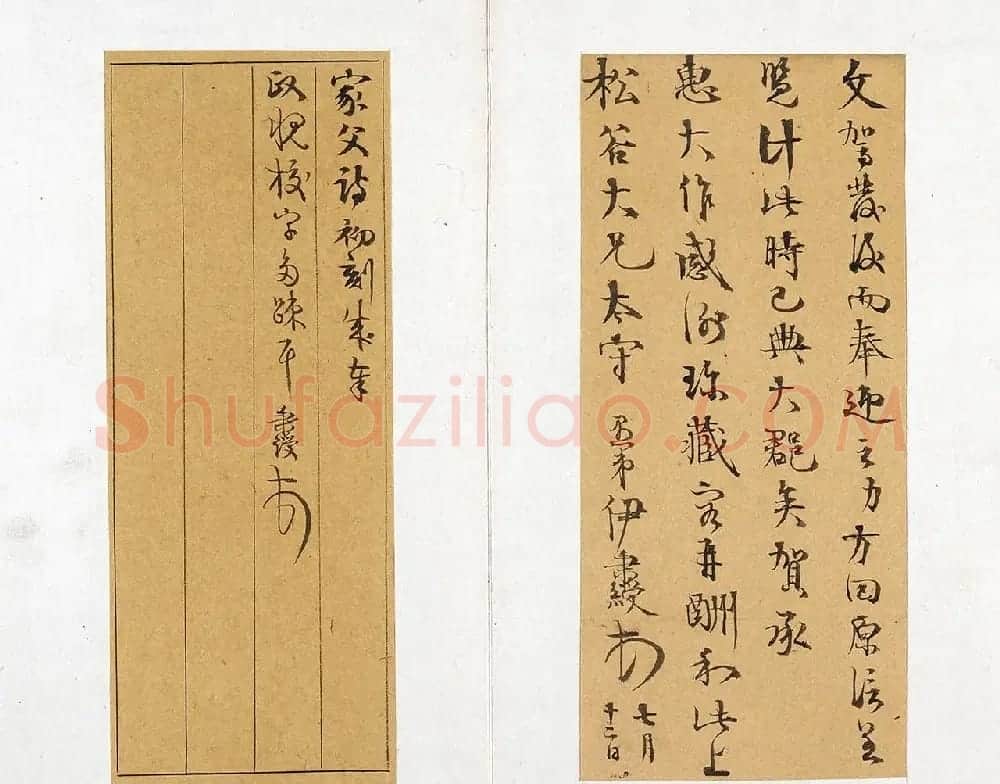 文駕發後而奉迎之力方回原信呈
覽計此時已典大郡矣賀承
惠大作感謝珍藏容再酬和此上
松谷大兄太守 愚弟伊秉綬頓首 七月
十二日
家父詩初刻成奉
政愧校字多疎耳 秉綬頓首
Shufaziliao.COM